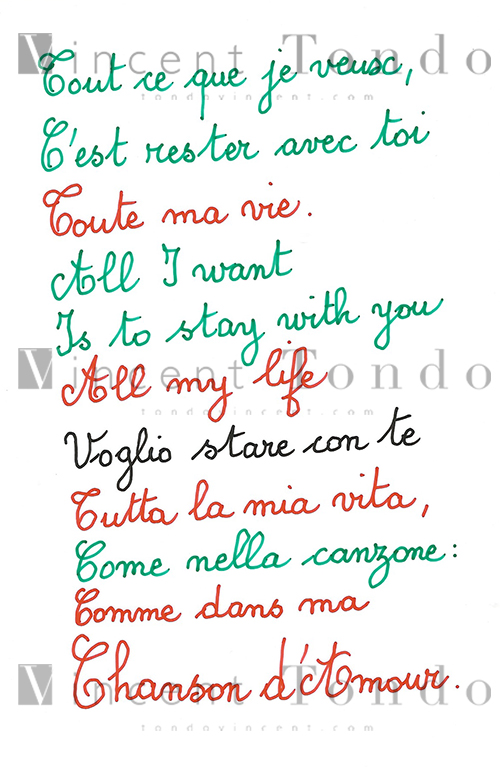 Vincent Tondo
Tout ce que je veux,
tondovincent.com
C'est rester avec toi
Toute ma vie.
All I want
Is to stay with you
Vincent Tondo
All my life
tondovincent.com
Voglio stare con te
Tutta la mia vita,
Come nella canzone:
Comme dans ma
Vincent Tondo
Chanson d'Amour.
tondovincent.com